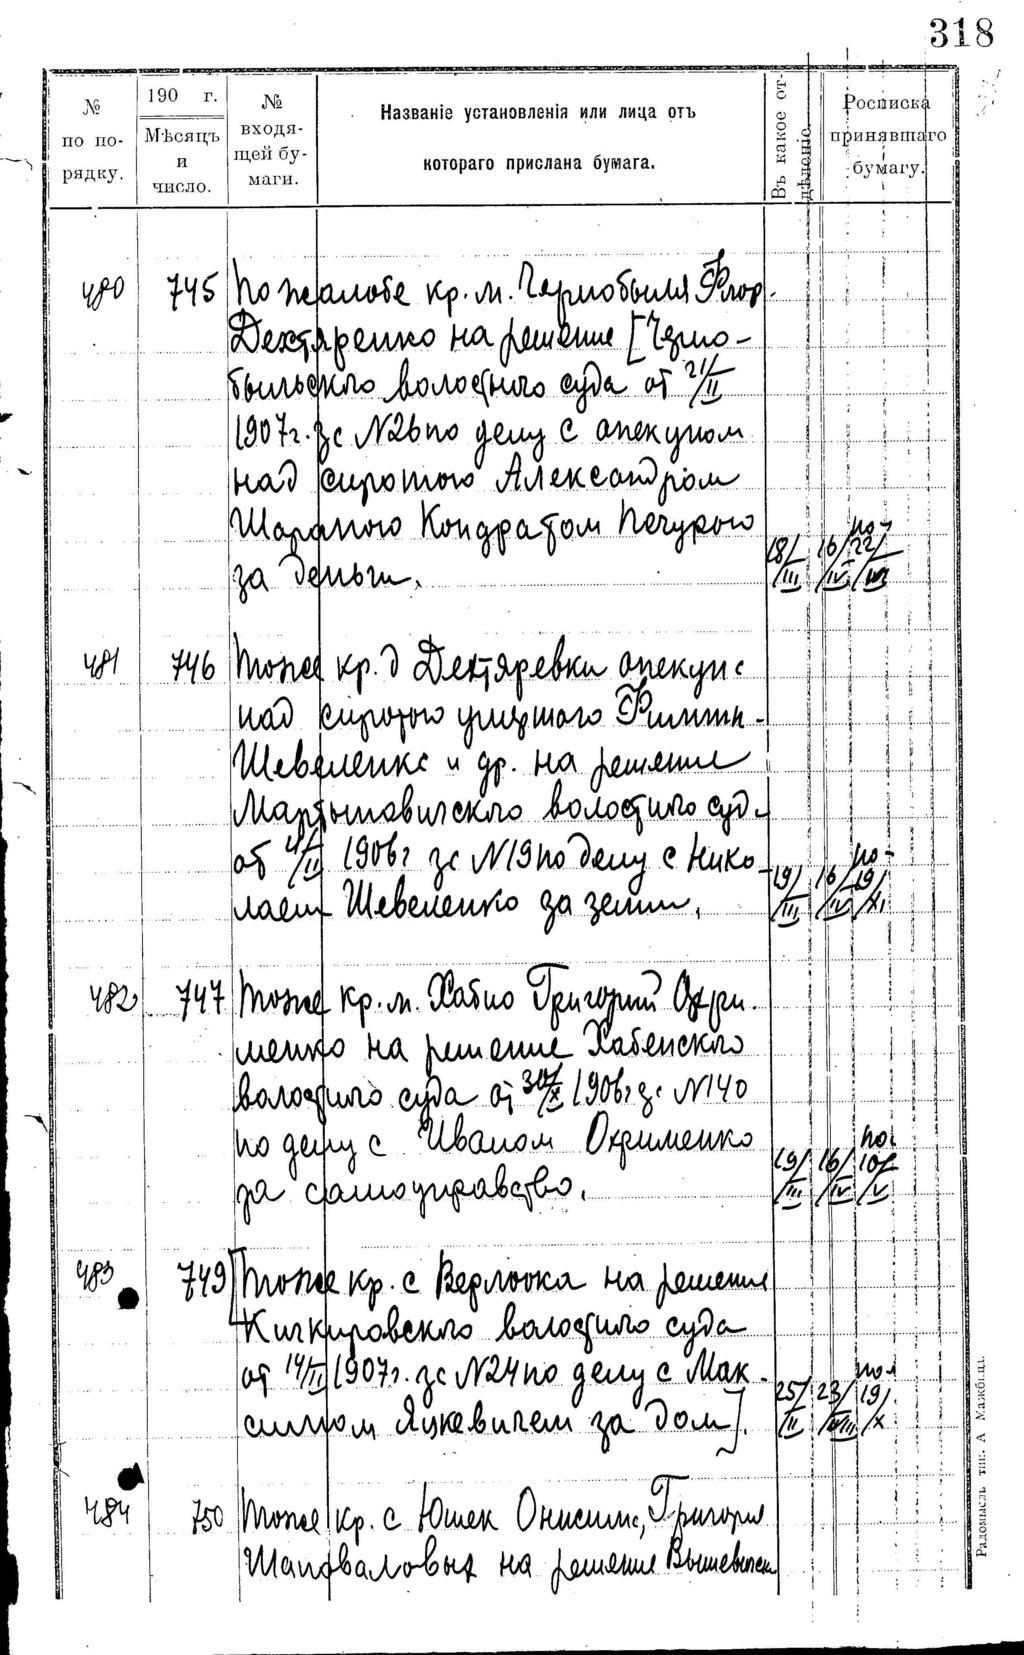 318
№ по по- рядку.
190 г.
Мѣсяцъ и число.
№ входя- щей бу- маги.
Названіе установленія или лица отъ
котораго прислана бумага.
Въ какое от- дѣленіе.
Росписка принявшаго бумагу.
480 745 По жалобе кр. м. Чернобыля Флор.
Дехтяренко на решение [Черно-
быльского волостного суда от 21/II
1907 г. за N26 по делу с опекуном
над сиротою Александром
Шарапою Кондратом Печурою
за деньги. 18/III 16/IV по- 22/
481 746 Тоже кр. д Дехтяревки опекунс
над сиротою умершого Филипп-
Шевеленкс и др. на решение
Мартыновического волостного суд.
от 4/II 1906 г за N19 по делу с Нико-
лаем Шевеленко за земли. 19/III 16/IV по- 19/XI
482 747 Тоже кр. м. Хабно Григорий Охри-
менко на решение Хабенского
волостного суда от 30/X 1906 г за N140
по делу с Иваном Охрименко
за самоуправство. 19/III 16/IV по 10/V
483 749 [Тоже кр. с Верлоока на решение
Кичкировского волостного суда
от 14/II 1907 г. за N24 по делу с Мак-
симом Яцкевичем за дом]. 25/II 23/ по 19/X
484 750 Тоже кр. с Юшек Онисима, Григория
Шаповаловых на решение
Радомысль тип. А Мажбица.